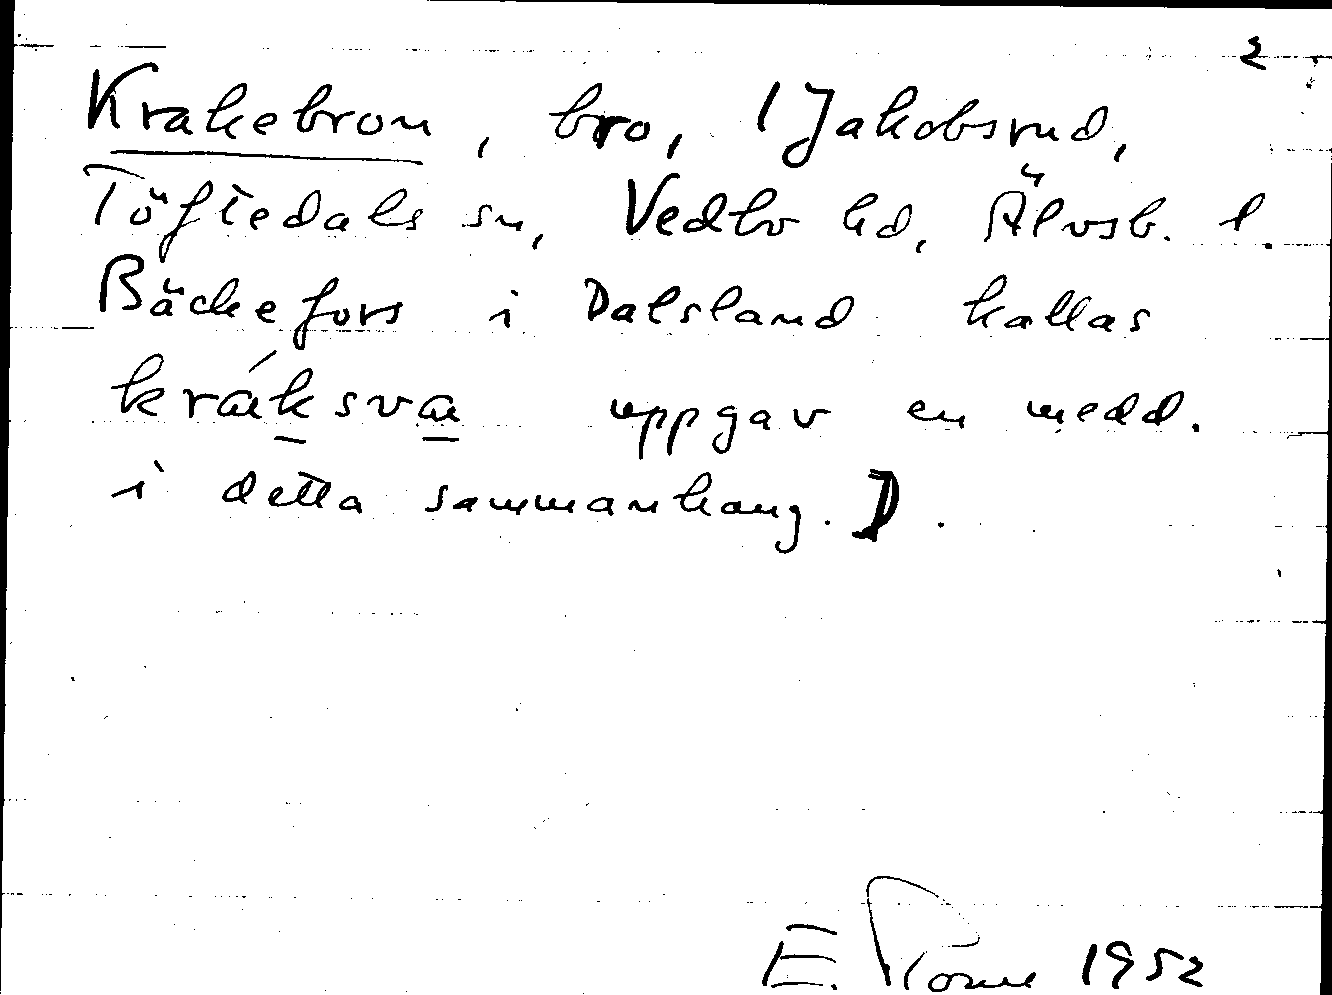 2
Krakebron, bro, 1 Jakobsrud,
Töftedals sn, Vedbo hd, Älvsb. l.
Bäckefors i Dalsland kallas
kráksva uppgav en medd.
i detta sammanhang. D.
E. 1952